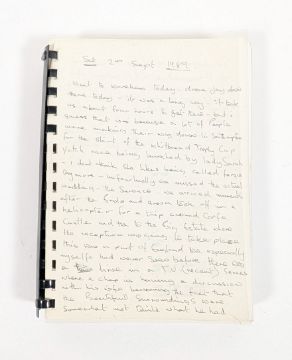 Sat 2nd Sept 1989
Went to Wareham today - drove Jay down
there today - it was a long way. It took
us about four hours to get there - but I
guess that was because a lot of people
were making their way down to Southampton
for the start of the Whitbread Trophy Cup
Yacht race being launched by Lady Sarah
- I don't think she likes being called Fergie
anymore - unfortunately we missed the actual
wedding - the Service - we arrived moments
after the bride and groom took off in a
helicopter for a trip around Corfe
Castle and then to the Big Estate where
the reception was going to take place.
This was a part of England we, especially
myself had never seen before. There was
a house on a T.V (recent) series
where a chap is having a discussion
with his wife because the fact that
the Beautiful Surroundings were
somewhat not quite what he had